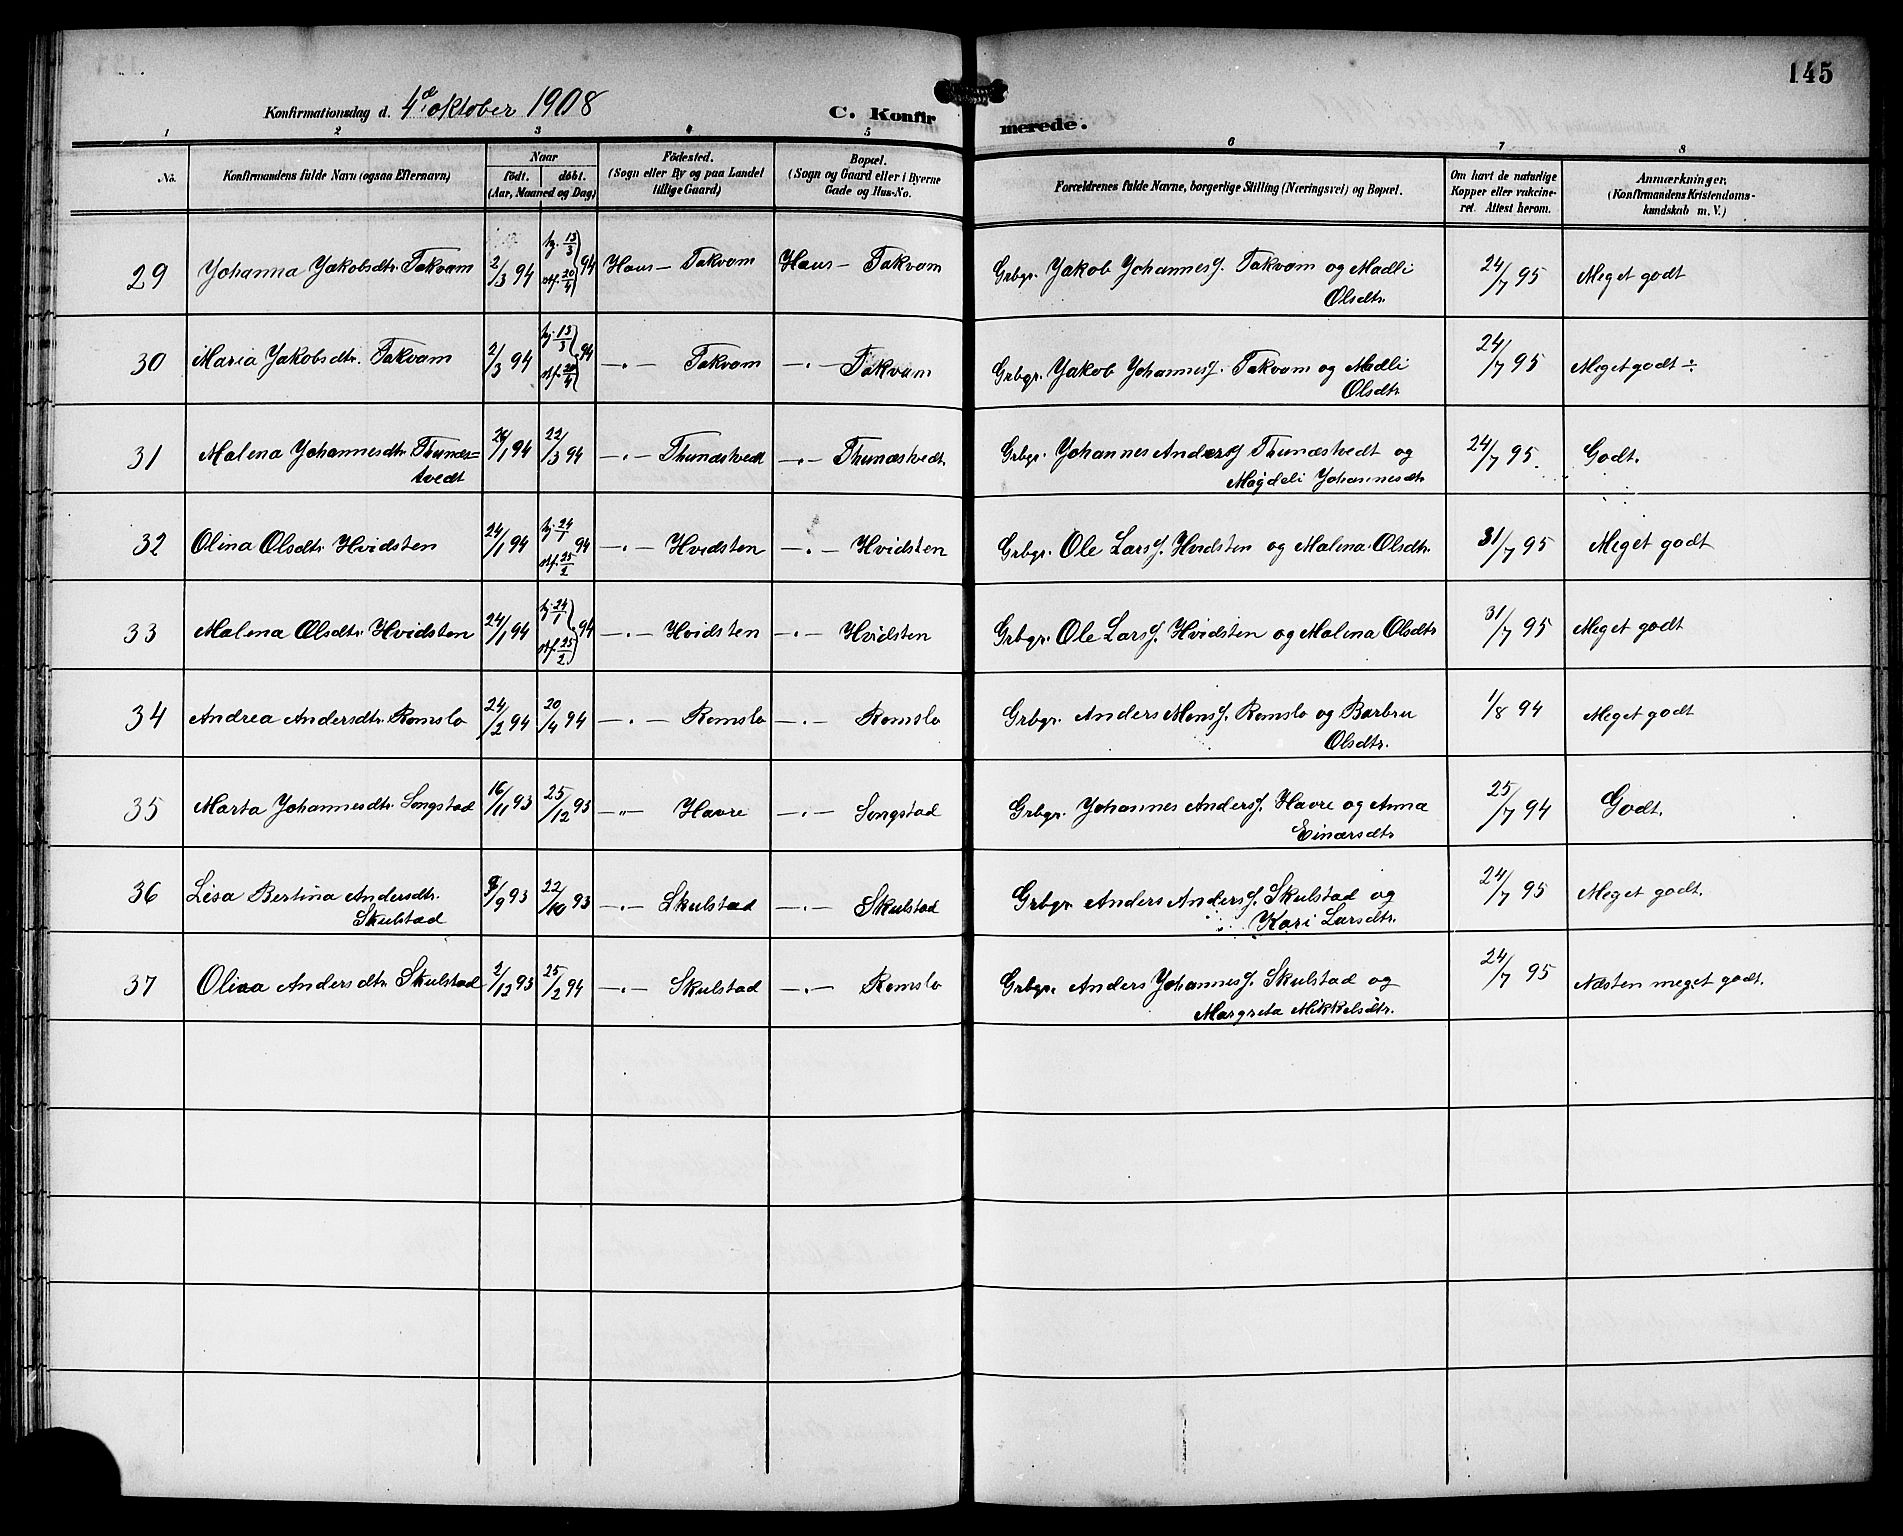 145
Konfirmationsdag d. 4de oktober 1908
C. Konfirmerede.
1 2 3 4 5 6 7 8
No. Konfirmandens fulde Navn (ogsaa Efternavn) Naar födt. döbt. (Aar, Maaned og Dag) Födested. (Sogn eller By og paa Landet tillige Gaard) Bopæl. (Sogn og Gaard eller i Byerne Gade og Hus-No. Forældrenes fulde Navne, borgerlige Stilling (Næringsvei) og Bopæl. Om havt de naturlige Kopper eller vakcineret. Attest herom. Anmærkninger. (Konfirmandens Kristendomskundskab m. V.)
29 Johanna Jakobsdtr. Takvam 2/3 94 hj. 13/3 stf. 20/4 94 Haus - Takvam Haus - Takvam Grbgr. Jakob Johannesf. Takvam og Madli 24/7 95 Meget godt
Olsdtr.
30 Maria Jakobsdtr. Takvam 2/3 94 hj. 13/3 stf. 20/4 94 -"- Takvam -"- Takvam Grbgr. Jakob Johannesf. Takvam og Madli 24/7 95 Meget godt ÷
Olsdtr.
31 Malena Johannesdtr. Thunæs= 26/1 94 22/3 94 -"- Thunæstvedt -"- Thunæstvedt. Grbgr. Johannes Andersf Thunæstvedt og 24/7 95. Godt.
tvedt Magdeli Johannesdtr.
32 Olina Olsdtr. Hvidsten 24/1 94 hj. 24/1 stf. 25/2 94 -"- Hvidsten -"- Hvidsten Grbgr. Ole Larsf. Hvidsten og Malena Olsdtr. 31/7 95 Meget godt
33 Malena Olsdtr. Hvidsten 24/1 94 hj. 24/1 stf. 25/2 94 -"- Hvidsten -"- Hvidsten Grbgr. Ole Larsf. Hvidsten og Malena Olsdtr 31/7 95 Meget godt
34 Andrea Andersdtr. Romslo 24/2 94 20/4 94 -"- Romslo -"- Romslo Grbgr. Anders Monsf. Romslo og Barbru 1/8 94 Meget godt
Olsdtr.
35 Marta Johannesdtr. Songstad 16/11 93 25/12 93 -"- Havre -"- Songstad Grbgr. Johannes Andersf. Havre og Anna 25/7 94 Godt.
Einarsdtr
36 Lisa Bertina Andersdtr. 9/9 93 22/10 93 -"- Skulstad -"- Skulstad Grbgr. Anders Andersf. Skulstad og 24/7 95 Meget godt.
Skulstad Kari Larsdtr.
37 Olina Andersdtr. Skulstad 2/12 93 25/2 94 -"- Skulstad -"- Romslo Grbgr. Anders Johannesf. Skulstad og 24/7 95 Næsten meget godt.
Margreta Mikkelsdtr.